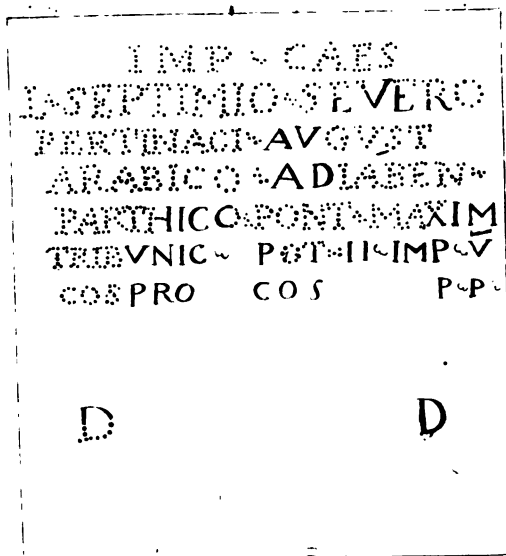 IMP CAES
L SEPTIMIO SEVERO
PERTINACI AVGVST
ARABICO ADIABEN
PARTHICO PONT MAXIM
TRIBVNIC POT II IMP V̅
COS PRO COS P P
D D